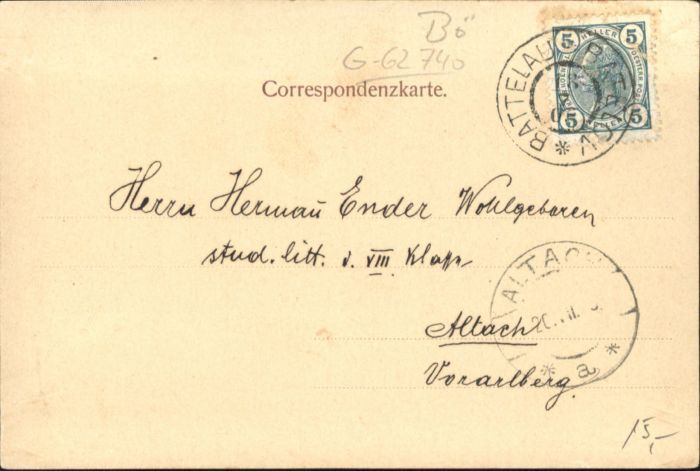 Bö
G-62740
Correspondenzkarte.
5 HELLER 5
5 HELLER 5
BATTELAU BATELOV
Herrn Hermañ Ender Wohlgeboren
stud. litt. d. VIII Klasse
Altach
Vorarlberg.
ALTACH
a
15,-